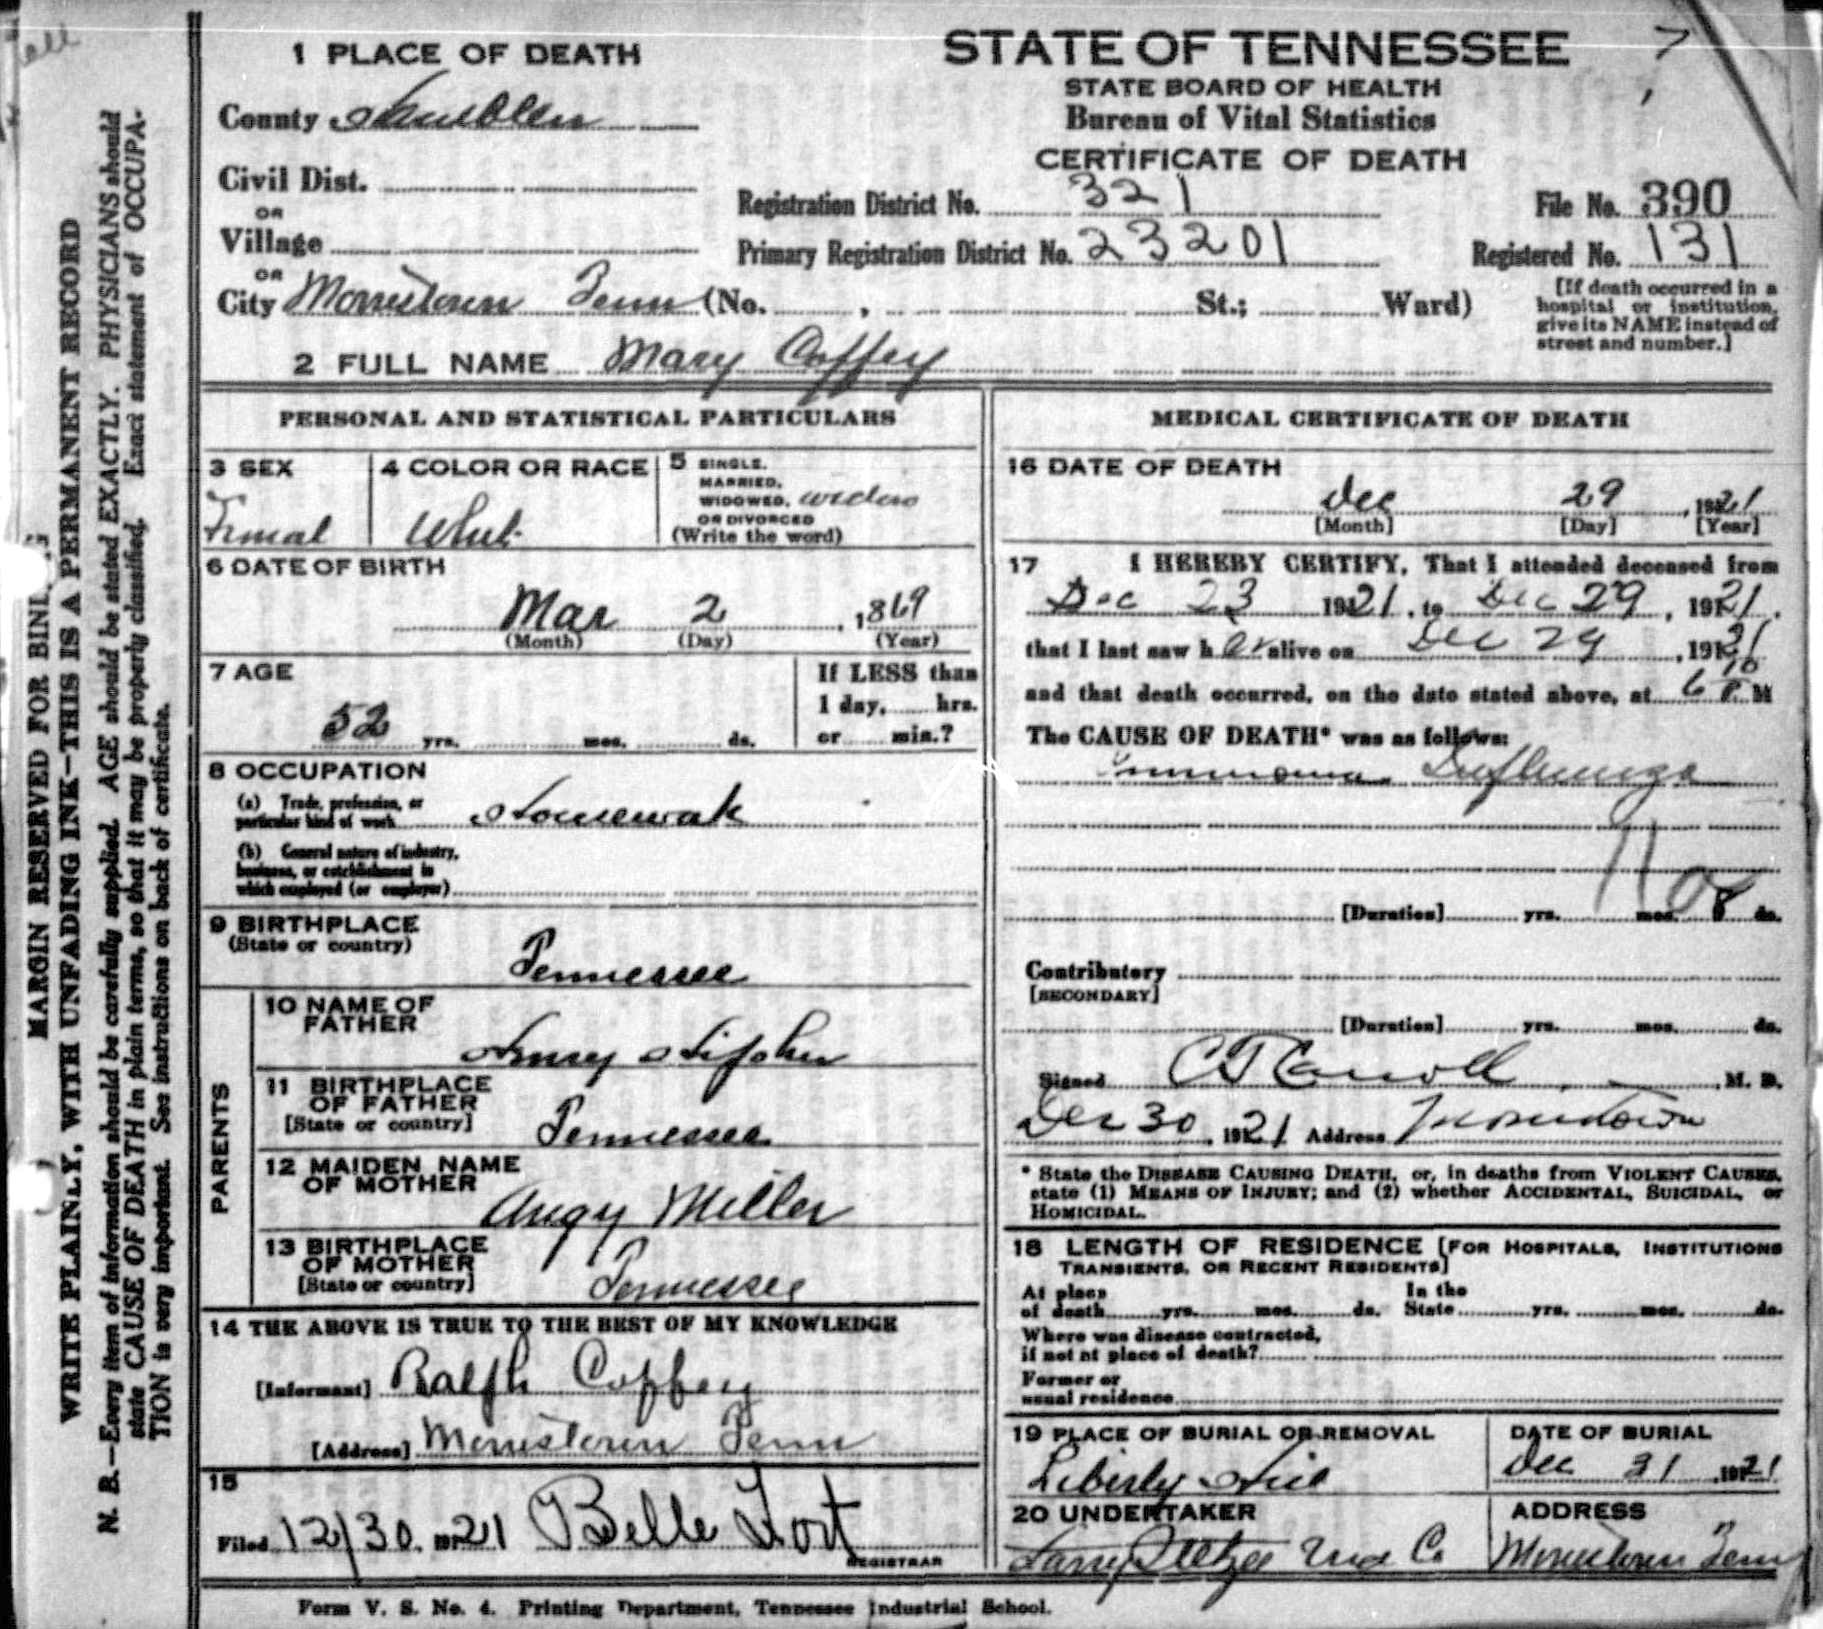 1 PLACE OF DEATH
County Hamblen
Civil Dist.
OR
Village
OR
City Morristown Tenn (No. , St.; Ward)
STATE OF TENNESSEE
STATE BOARD OF HEALTH
Bureau of Vital Statistics
CERTIFICATE OF DEATH
Registration District No. 321
Primary Registration District No. 23201
File No. 390
Registered No. 131
[If death occurred in a
hospital or institution,
give its NAME instead of
street and number.]
2 FULL NAME Mary Coffey
PERSONAL AND STATISTICAL PARTICULARS
3 SEX
Femal
4 COLOR OR RACE
White
5 SINGLE,
MARRIED,
WIDOWED, widow
OR DIVORCED
(Write the word)
6 DATE OF BIRTH
Mar 2 , 1869
(Month) (Day) (Year)
7 AGE
52 yrs. mos. ds.
If LESS than
1 day, hrs.
or min.?
8 OCCUPATION
(a) Trade, profession, or
particular kind of work Housework
(b) General nature of industry,
business, or establishment in
which employed (or employer)
9 BIRTHPLACE
(State or country)
Tennessee
PARENTS
10 NAME OF
FATHER
Henry
11 BIRTHPLACE
OF FATHER
[State or country]
Tennessee
12 MAIDEN NAME
OF MOTHER
Angy Miller
13 BIRTHPLACE
OF MOTHER
[State or country]
Tennessee
14 THE ABOVE IS TRUE TO THE BEST OF MY KNOWLEDGE
[Informant] Ralph Coffey
[Address] Morristown Tenn
15
Filed 12/30, 1921 Belle Fort
REGISTRAR
MEDICAL CERTIFICATE OF DEATH
16 DATE OF DEATH
Dec 29 , 1921
[Month] [Day] [Year]
17 I HEREBY CERTIFY, That I attended deceased from
Dec 23 1921, to Dec 29, 1921.
that I last saw her alive on Dec 29, 1921
and that death occurred, on the date stated above, at 6 10 P M
The CAUSE OF DEATH* was as follows:
Influenza
[Duration] yrs. mos. 8 ds.
Contributory
[SECONDARY]
[Duration] yrs. mos. ds.
Signed C T Carroll , M. D.
Dec 30, 1921 Address Morristown
* State the DISEASE CAUSING DEATH, or, in deaths from VIOLENT CAUSES,
state (1) MEANS OF INJURY; and (2) whether ACCIDENTAL, SUICIDAL, or
HOMICIDAL.
18 LENGTH OF RESIDENCE [FOR HOSPITALS, INSTITUTIONS
TRANSIENTS, OR RECENT RESIDENTS]
At place In the
of death yrs. mos. ds. State yrs. mos. ds.
Where was disease contracted,
if not at place of death?
Former or
usual residence
19 PLACE OF BURIAL OR REMOVAL
Liberty Hill
DATE OF BURIAL
Dec 31 , 1921
20 UNDERTAKER
Und Co
ADDRESS
Morristown Tenn
Form V. S. No. 4. Printing Department, Tennessee Industrial School.
MARGIN RESERVED FOR
WRITE PLAINLY, WITH UNFADING INK—THIS IS A PERMANENT RECORD
N. B.—Every item of information should be carefully supplied. AGE should be stated EXACTLY. PHYSICIANS should
state CAUSE OF DEATH in plain terms, so that it may be properly classified. Exact statement of OCCUPA-
TION is very important. See instructions on back of certificate.